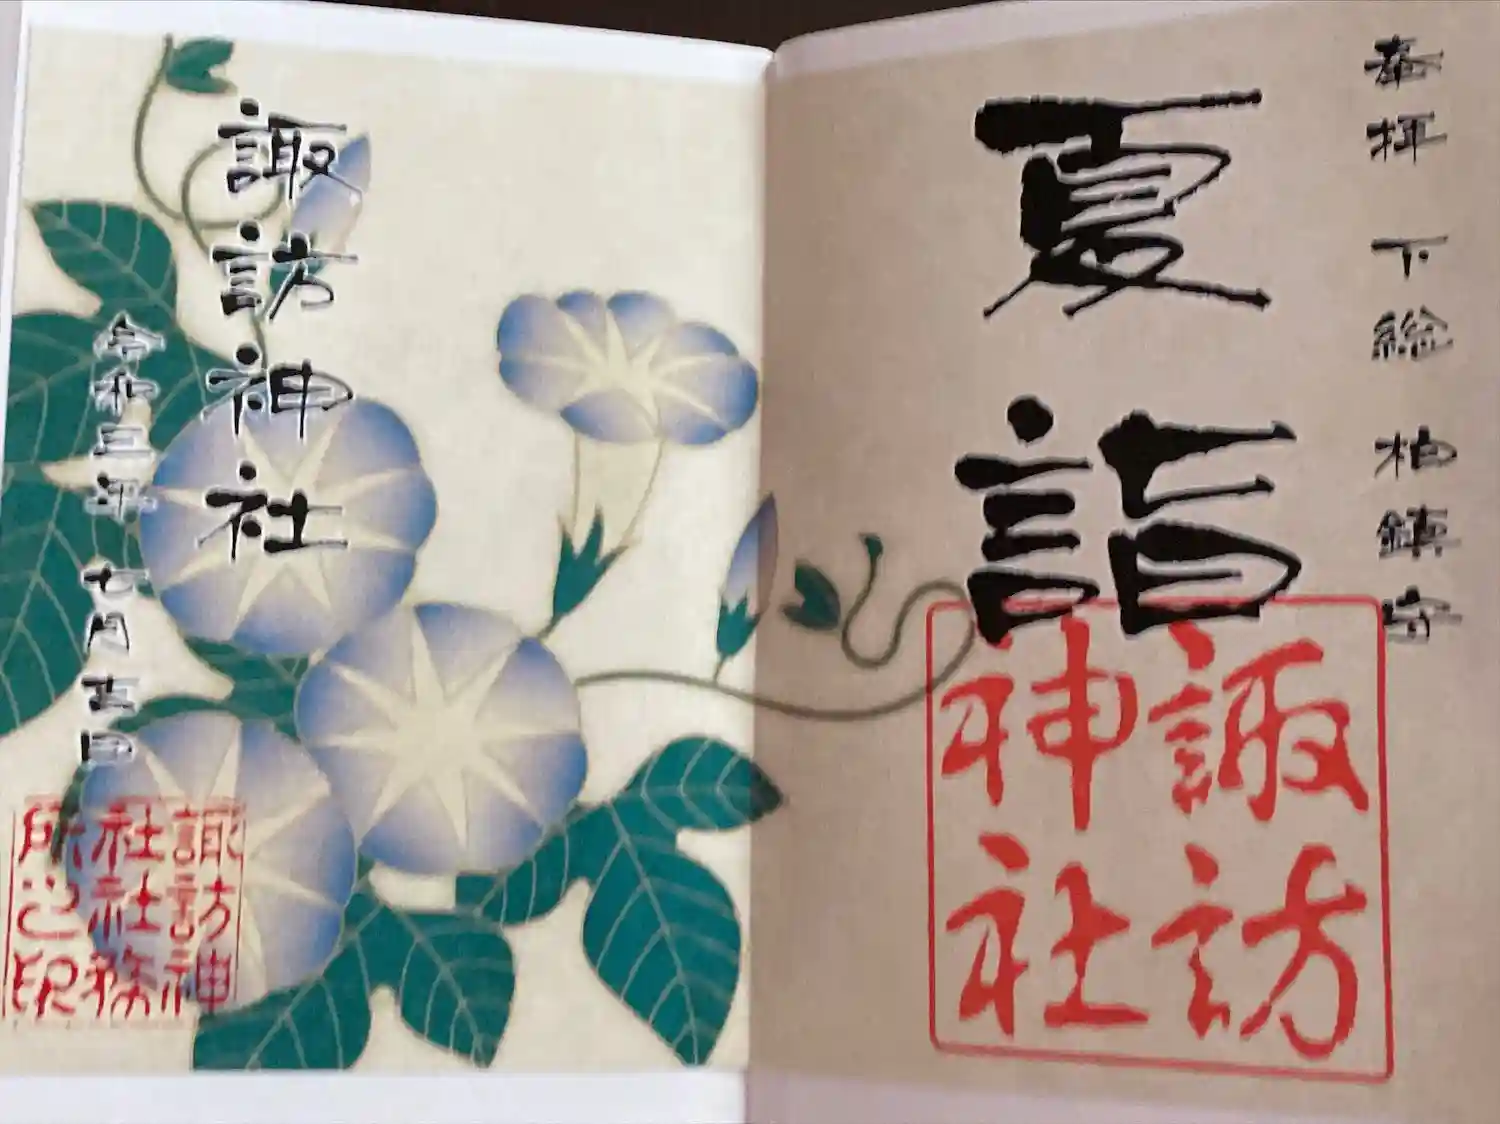 奉拝 下総 柏鎮守
夏詣
諏訪
神社
諏訪神社
令和三年 七月 日
諏訪神
社社務
所之印